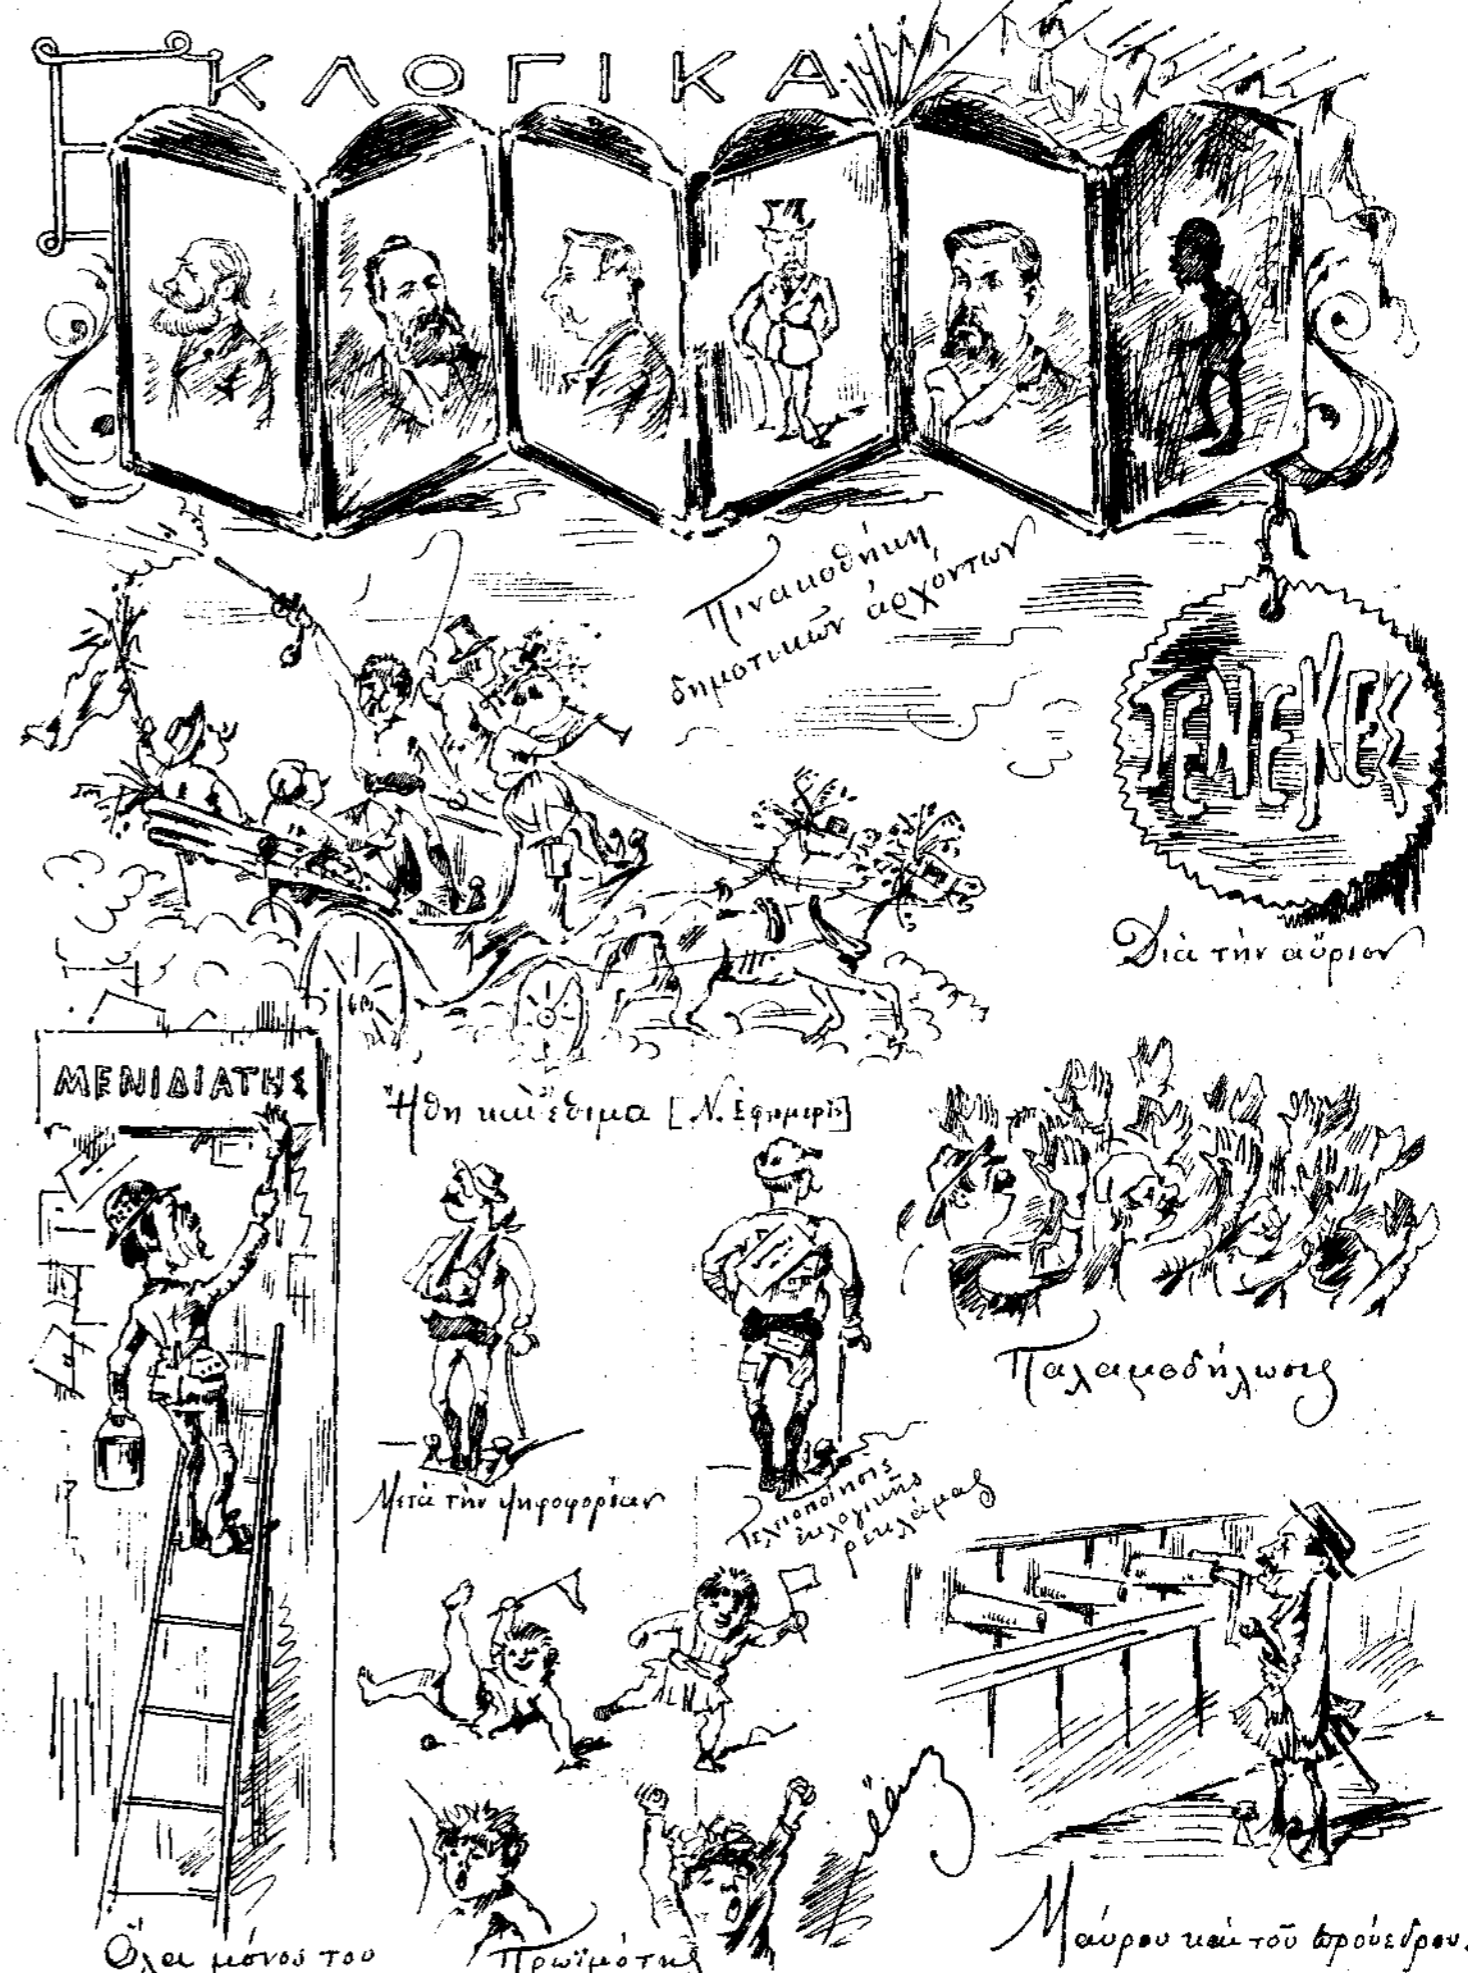 ΕΚΛΟΓΙΚΑ
Πινακοθήκη
δημοτικῶν ἀρχόντων
ΤΕΝΕΚΕΣ
Διὰ τὴν αὔριον
ΜΕΝΙΔΙΑΤΗΣ
Ἤθη καὶ ἔθιμα [Ν. Ἐφημερὶς]
Παλαμοδήλωσις
Μετὰ τὴν ψηφοφορίαν
Τελειοποίησις
ἐκλογικῆς
ρεκλάμας
Ὅλα μόνος του
Πρωϊμότης
Μαύρου καὶ τοῦ προέδρου.